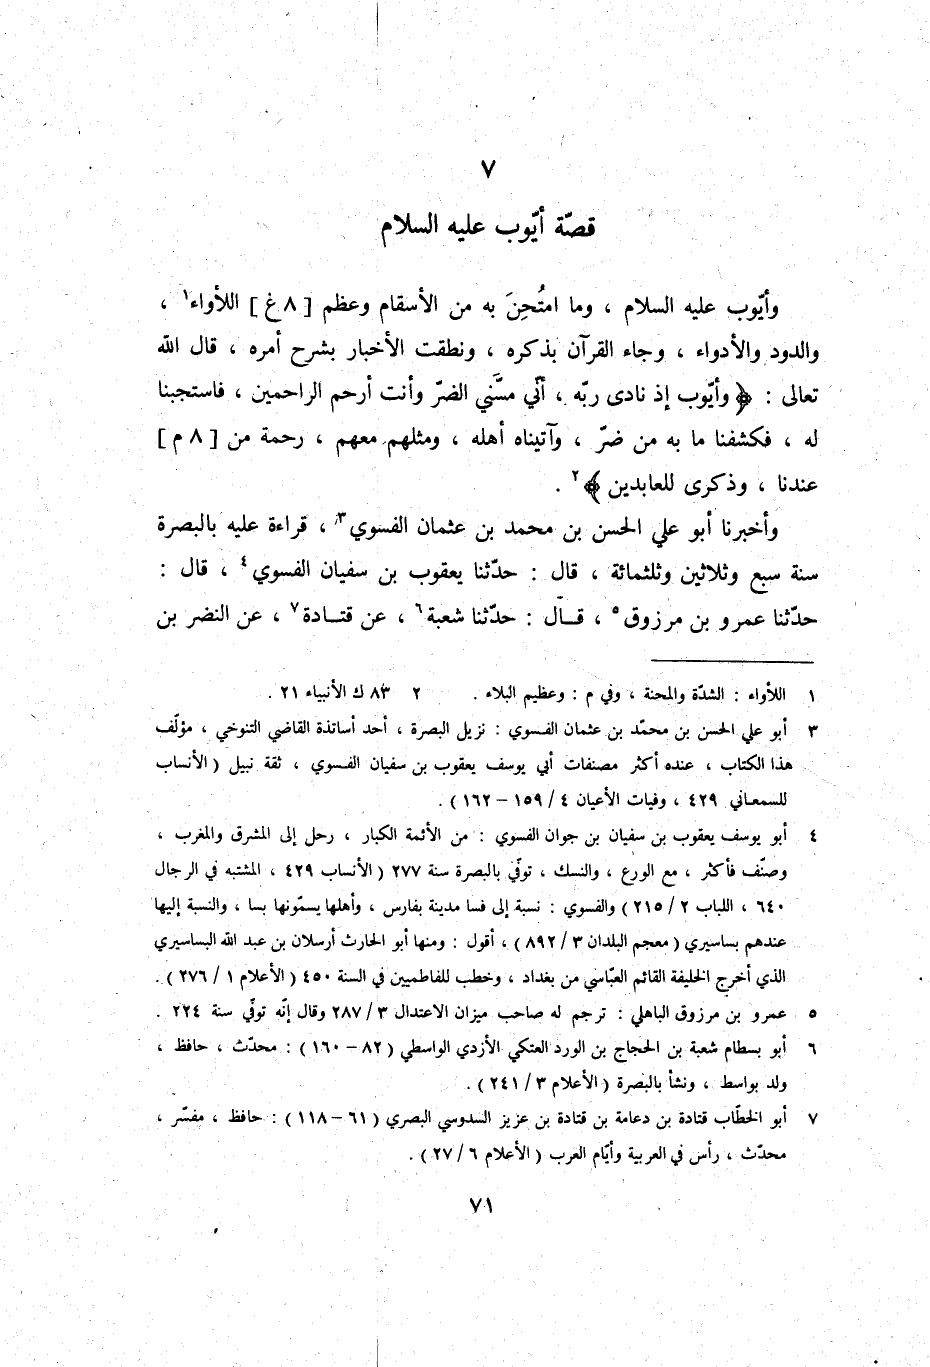 ٧
قصّة أيّوب عليه السلام
وأيّوب عليه السلام ، وما امتُحِنَ به من الأسقام وعظم [ ٨ غ ] اللأواء١ ،
والدود والأدواء ، وجاء القرآن بذكره ، ونطقت الأخبار بشرح أمره ، قال الله
تعالى : ﴿ وأيّوب إذ نادى ربّه ، أنّي مسَّني الضرّ وأنت أرحم الراحمين ، فاستجبنا
له ، فكشفنا ما به من ضرّ ، وآتيناه أهله ، ومثلهم معهم ، رحمة من [ ٨ م ]
عندنا ، وذكرى للعابدين ﴾٢ .
وأخبرنا أبو علي الحسن بن محمد بن عثمان الفسوي٣ ، قراءة عليه بالبصرة
سنة سبع وثلاثين وثلثمائة ، قال : حدّثنا يعقوب بن سفيان الفسوي٤ ، قال :
حدّثنا عمرو بن مرزوق٥ ، قــال : حدّثنا شعبة٦ ، عن قتــادة٧ ، عن النضر بن
١ اللأواء : الشدّة والمحنة ، وفي م : وعظيم البلاء . ٢ ٨٣ ك الأنبياء ٢١ .
٣ أبو علي الحسن بن محمّد بن عثمان الفسوي : نزيل البصرة ، أحد أساتذة القاضي التنوخي ، مؤلّف
هذا الكتاب ، عنده أكثر مصنفات أبي يوسف يعقوب بن سفيان الفسوي ، ثقة نبيل ( الأنساب
للسمعاني ٤٢٩ ، وفيات الأعيان ٤ / ١٥٩ – ١٦٢ ) .
٤ أبو يوسف يعقوب بن سفيان بن جوان الفسوي : من الأئمة الكبار ، رحل إلى المشرق والمغرب ،
وصنّف فأكثر ، مع الورع ، والنسك ، توفّي بالبصرة سنة ٢٧٧ ( الأنساب ٤٢٩ ، المشتبه في الرجال
٦٤٠ ، اللباب ٢ / ٢١٥ ) والفسوي : نسبة إلى فسا مدينة بفارس ، وأهلها يسمّونها بسا ، والنسبة إليها
عندهم بساسيري ( معجم البلدان ٣ / ٨٩٢ ) ، أقول : ومنها أبو الحارث أرسلان بن عبد الله البساسيري
الذي أخرج الخليفة القائم العبّاسي من بغداد ، وخطب للفاطميين في السنة ٤٥٠ ( الأعلام ١ / ٢٧٦ ) .
٥ عمرو بن مرزوق الباهلي : ترجم له صاحب ميزان الاعتدال ٣ / ٢٨٧ وقال إنّه توفّي سنة ٢٢٤ .
٦ أبو بسطام شعبة بن الحجاج بن الورد العتكي الأزدي الواسطي ( ٨٢ – ١٦٠ ) : محدّث ، حافظ ،
ولد بواسط ، ونشأ بالبصرة ( الأعلام ٣ / ٢٤١ ) .
٧ أبو الخطّاب قتادة بن دعامة بن قتادة بن عزيز السدوسي البصري ( ٦١ – ١١٨ ) : حافظ ، مفسّر ،
محدّث ، رأس في العربية وأيّام العرب ( الأعلام ٦ / ٢٧ ) .
٧١